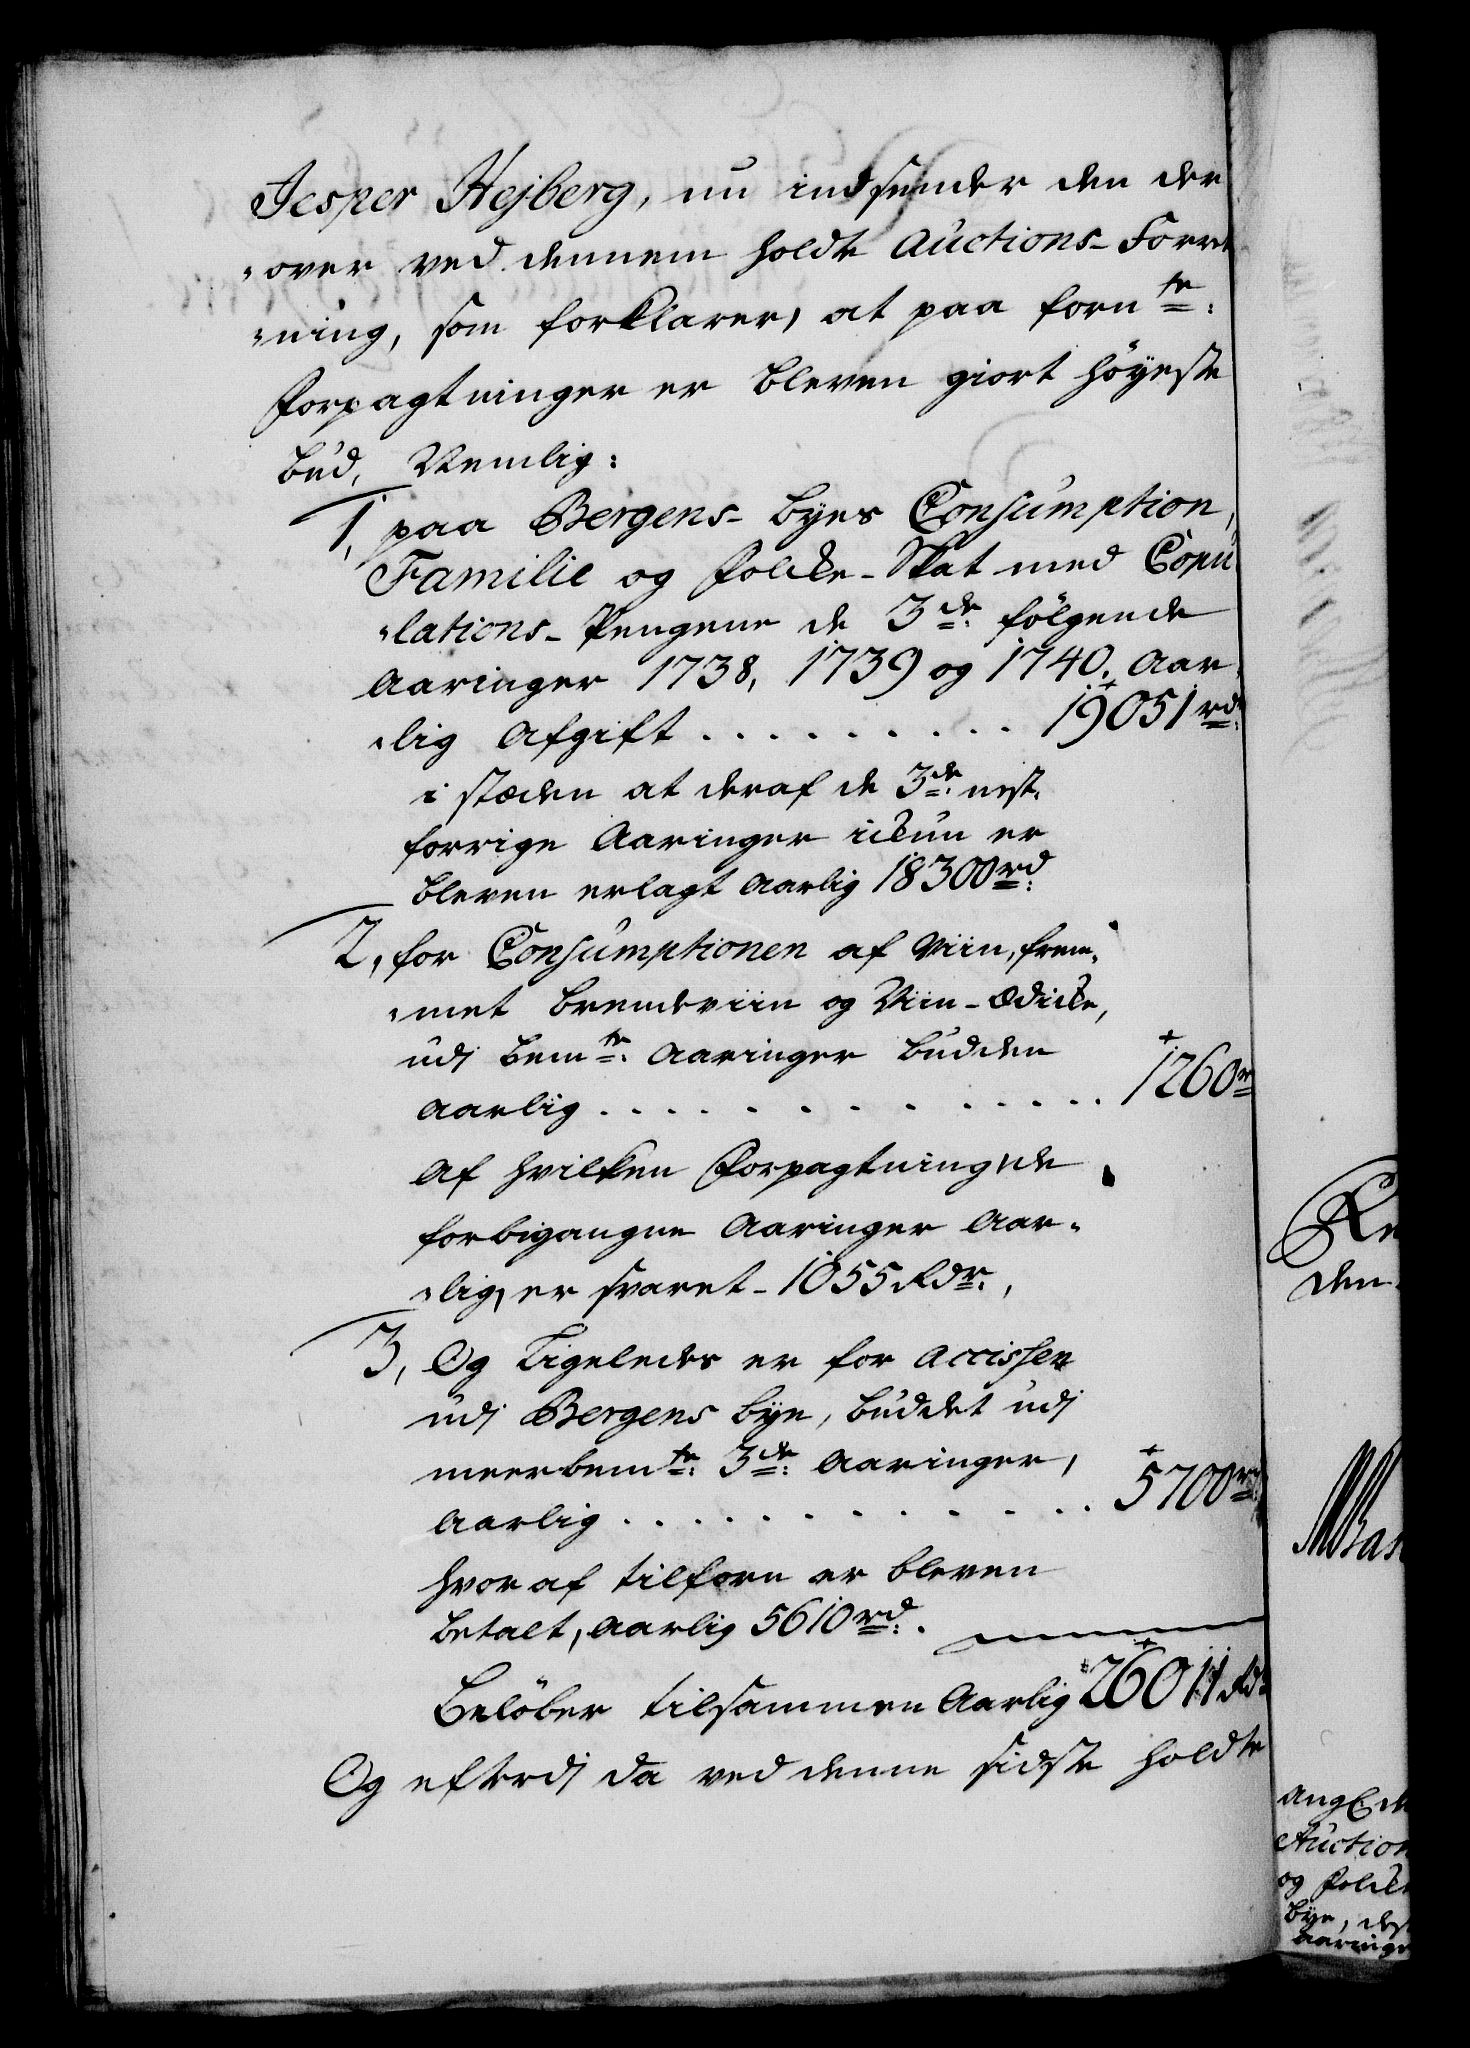 Jesper Hejberg, nu indsender den der
„over ved dennem holdte Auctions-Forret
„ning, som forklarer, at paa fornte:
Forpagtninger er bleven giort höyeste
bud, Nemlig:
1, paa Bergens- byes Consumption,
Familie og Folcke-Skat med Copu
„lations-Pengene de 3de: fölgende
Aaringer 1738, 1739 og 1740, Aar„
„lig Afgift . . . . . . . . . 19051 rd:
i stæden at deraf de 3de: nest„
forrige Aaringer ickun er
bleven erlagt Aarlig 18300 rd:
2, for Consumptionen af Viin, frem„
„met brendeviin og Viin-Ædicke,
udj bemte: Aaringer budden
Aarlig . . . . . . . . . . . . 1260 r
Af hvilken Forpagtning, de
forbigangne Aaringer Aar„
„lig, er svaret - 1055 Rdr:,
3, Og Ligeledes er for Accissen
udj Bergens bye, buddet udj
meerbemte: 3de: Aaringer,
Aarlig . . . . . . . . . . . . 5700 rd:
hvoraf tilforn er bleven
betalt, Aarlig 5610 rd:.
Belöber tilsammen Aarlig 26011 Rd:
Og efterdj da ved denne sidste holdte
Re
den
Ang
Auction
og Folck
bye, des
Aaringe